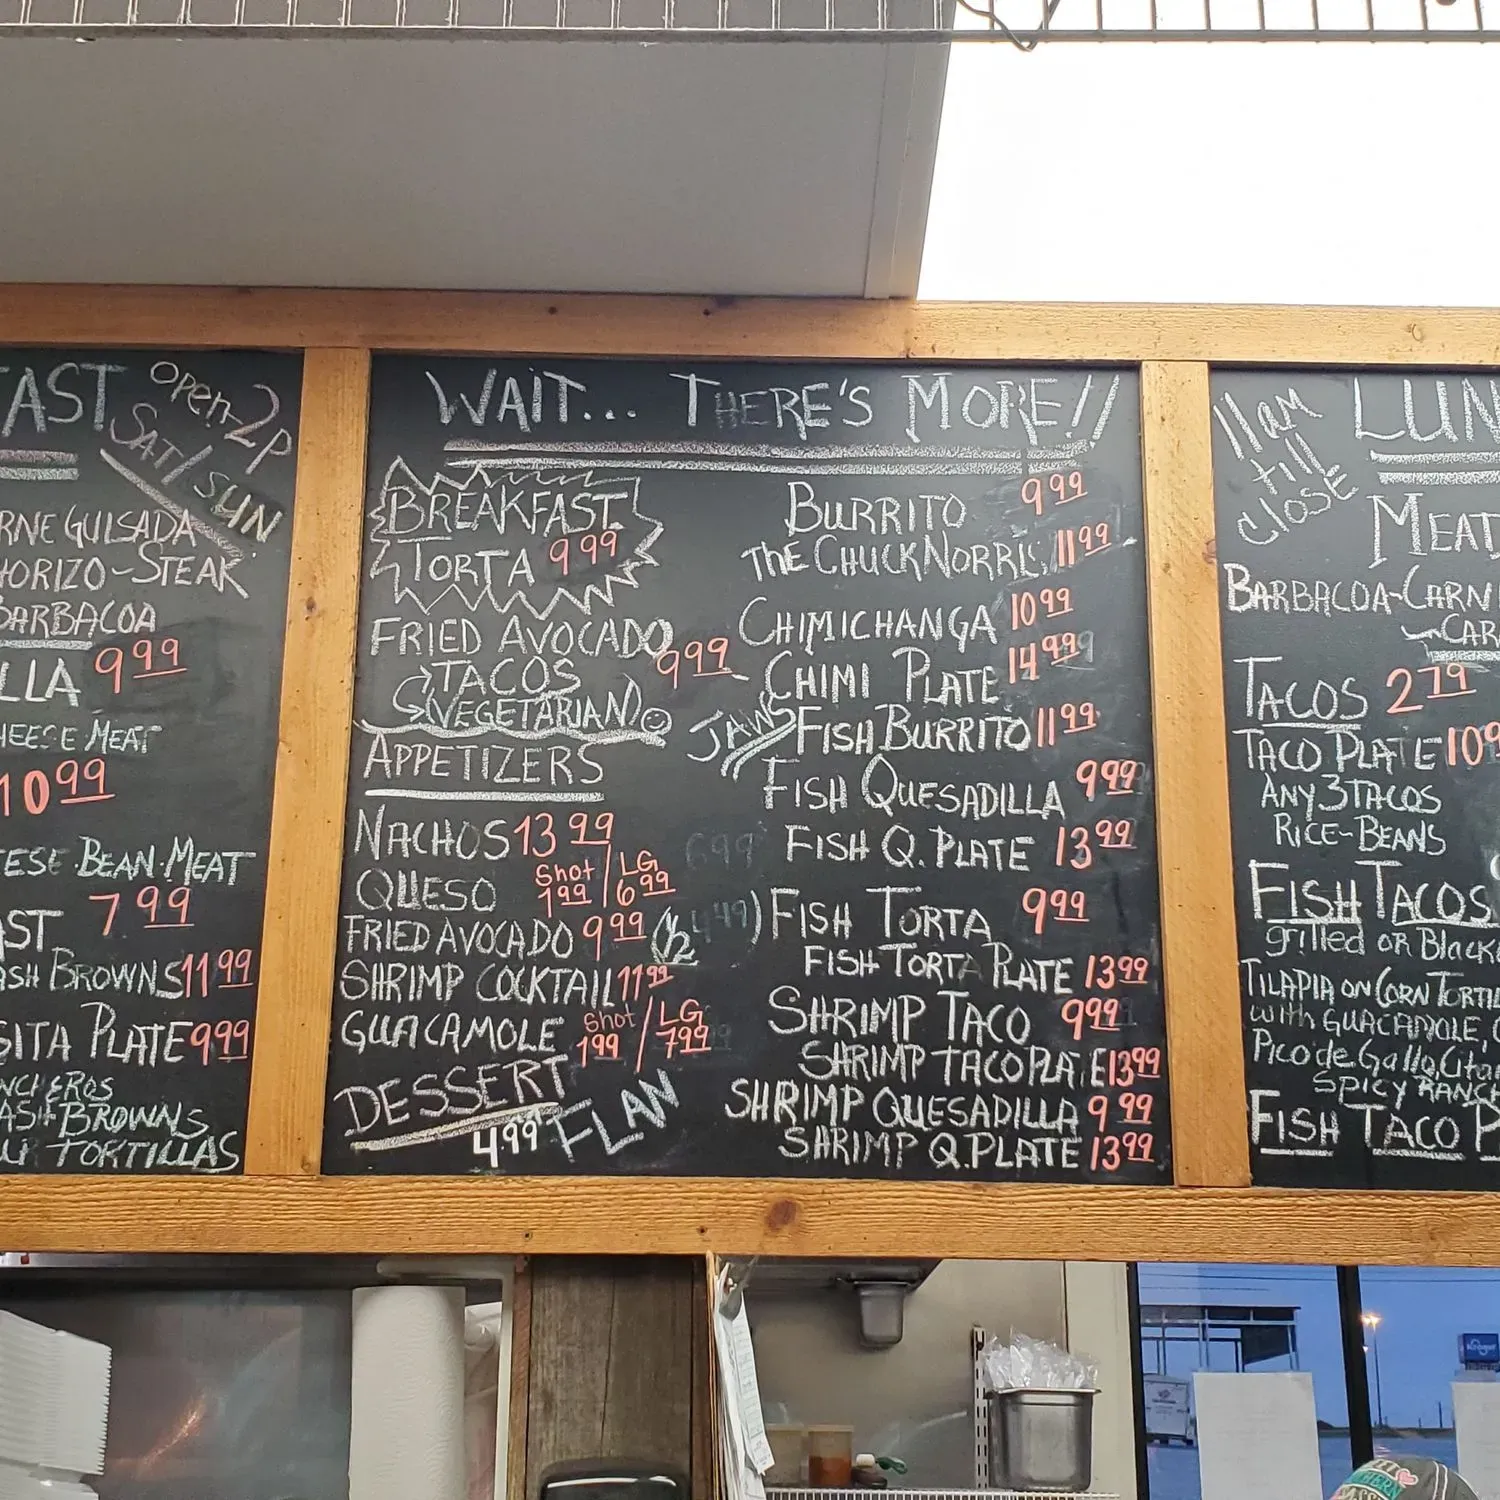 AST
Open-2P
SAT/SUN
RNE GUISADA
HORIZO-STEAK
BARBACOA
LLA 9.99
HEESE MEAT
10.99
ESE BEAN-MEAT
7.99
AST
ASH BROWNS 11.99
SITA PLATE 9.99
NCHEROS
ASH BROWNS
TORTILLAS
WAIT... THERE'S MORE!!
BREAKFAST
TORTA 9.99
FRIED AVOCADO
TACOS 9.99
(VEGETARIAN)
APPETIZERS
NACHOS 13.99
QUESO Shot 1.99 / LG 6.99
FRIED AVOCADO 9.99
SHRIMP COCKTAIL 11.99
GUACAMOLE Shot 1.99 / LG 7.99
DESSERT
4.99 FLAN
BURRITO 9.99
THE CHUCK NORRIS 11.99
CHIMICHANGA 10.99
CHIMI PLATE 14.99
JAWS FISH BURRITO 11.99
FISH QUESADILLA 9.99
FISH Q. PLATE 13.99
FISH TORTA 9.99
FISH TORTA PLATE 13.99
SHRIMP TACO 9.99
SHRIMP TACO PLATE 13.99
SHRIMP QUESADILLA 9.99
SHRIMP Q. PLATE 13.99
11am till close
LUN
MEAT
BARBACOA-CARNI
CAR
TACOS 2.79
TACO PLATE 10.9
ANY 3 TACOS
RICE-BEANS
FISH TACOS
grilled OR Black
TILAPIA ON CORN TORTI
with GUACAMOLE, C
Pico de Gallo,
SPICY RANCH
FISH TACO P
Kroger